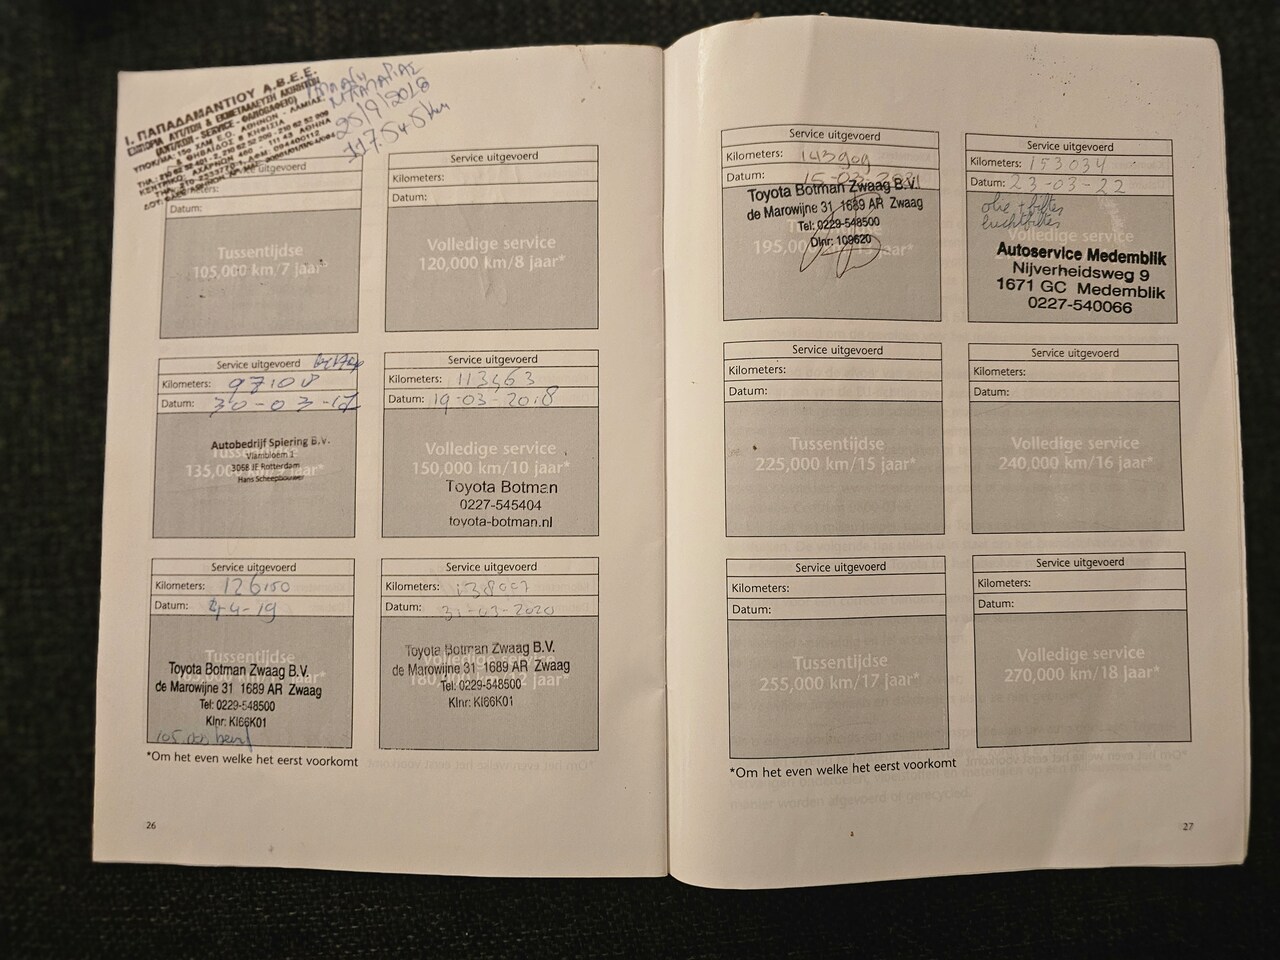 Ι. ΠΑΠΑΔΑΜΑΝΤΙΟΥ Α.Β.Ε.Ε.
25/9/2018
117.545 km
Service uitgevoerd
Datum:
Tussentijdse
105,000 km/7 jaar*
Service uitgevoerd
Kilometers:
Datum:
Volledige service
120,000 km/8 jaar*
Service uitgevoerd
Kilometers: 97108
Datum: 30-03-17
Autobedrijf Spiering B.V.
Vlambloem 1
3068 JE Rotterdam
135,000 km/9 jaar*
Service uitgevoerd
Kilometers: 113463
Datum: 19-03-2018
Volledige service
150,000 km/10 jaar*
Toyota Botman
0227-545404
toyota-botman.nl
Service uitgevoerd
Kilometers: 126150
Datum: 4-4-19
Tussentijdse
Toyota Botman Zwaag B.V.
de Marowijne 31 1689 AR Zwaag
Tel: 0229-548500
Klnr: KI66K01
Service uitgevoerd
Kilometers: 138007
Datum: 31-03-2020
Toyota Botman Zwaag B.V.
de Marowijne 31 1689 AR Zwaag
Tel: 0229-548500
Klnr: KI66K01
*Om het even welke het eerst voorkomt
26
Service uitgevoerd
Kilometers: 143909
Datum: 15-03-2021
Toyota Botman Zwaag B.V.
de Marowijne 31 1689 AR Zwaag
Tel: 0229-548500
Dlnr: 109620
Service uitgevoerd
Kilometers: 153034
Datum: 23-03-22
olie + filter
luchtfilter
Volledige service
Autoservice Medemblik
Nijverheidsweg 9
1671 GC Medemblik
0227-540066
Service uitgevoerd
Kilometers:
Datum:
Tussentijdse
225,000 km/15 jaar*
Service uitgevoerd
Kilometers:
Datum:
Volledige service
240,000 km/16 jaar*
Service uitgevoerd
Kilometers:
Datum:
Tussentijdse
255,000 km/17 jaar*
Service uitgevoerd
Kilometers:
Datum:
Volledige service
270,000 km/18 jaar*
*Om het even welke het eerst voorkomt
27